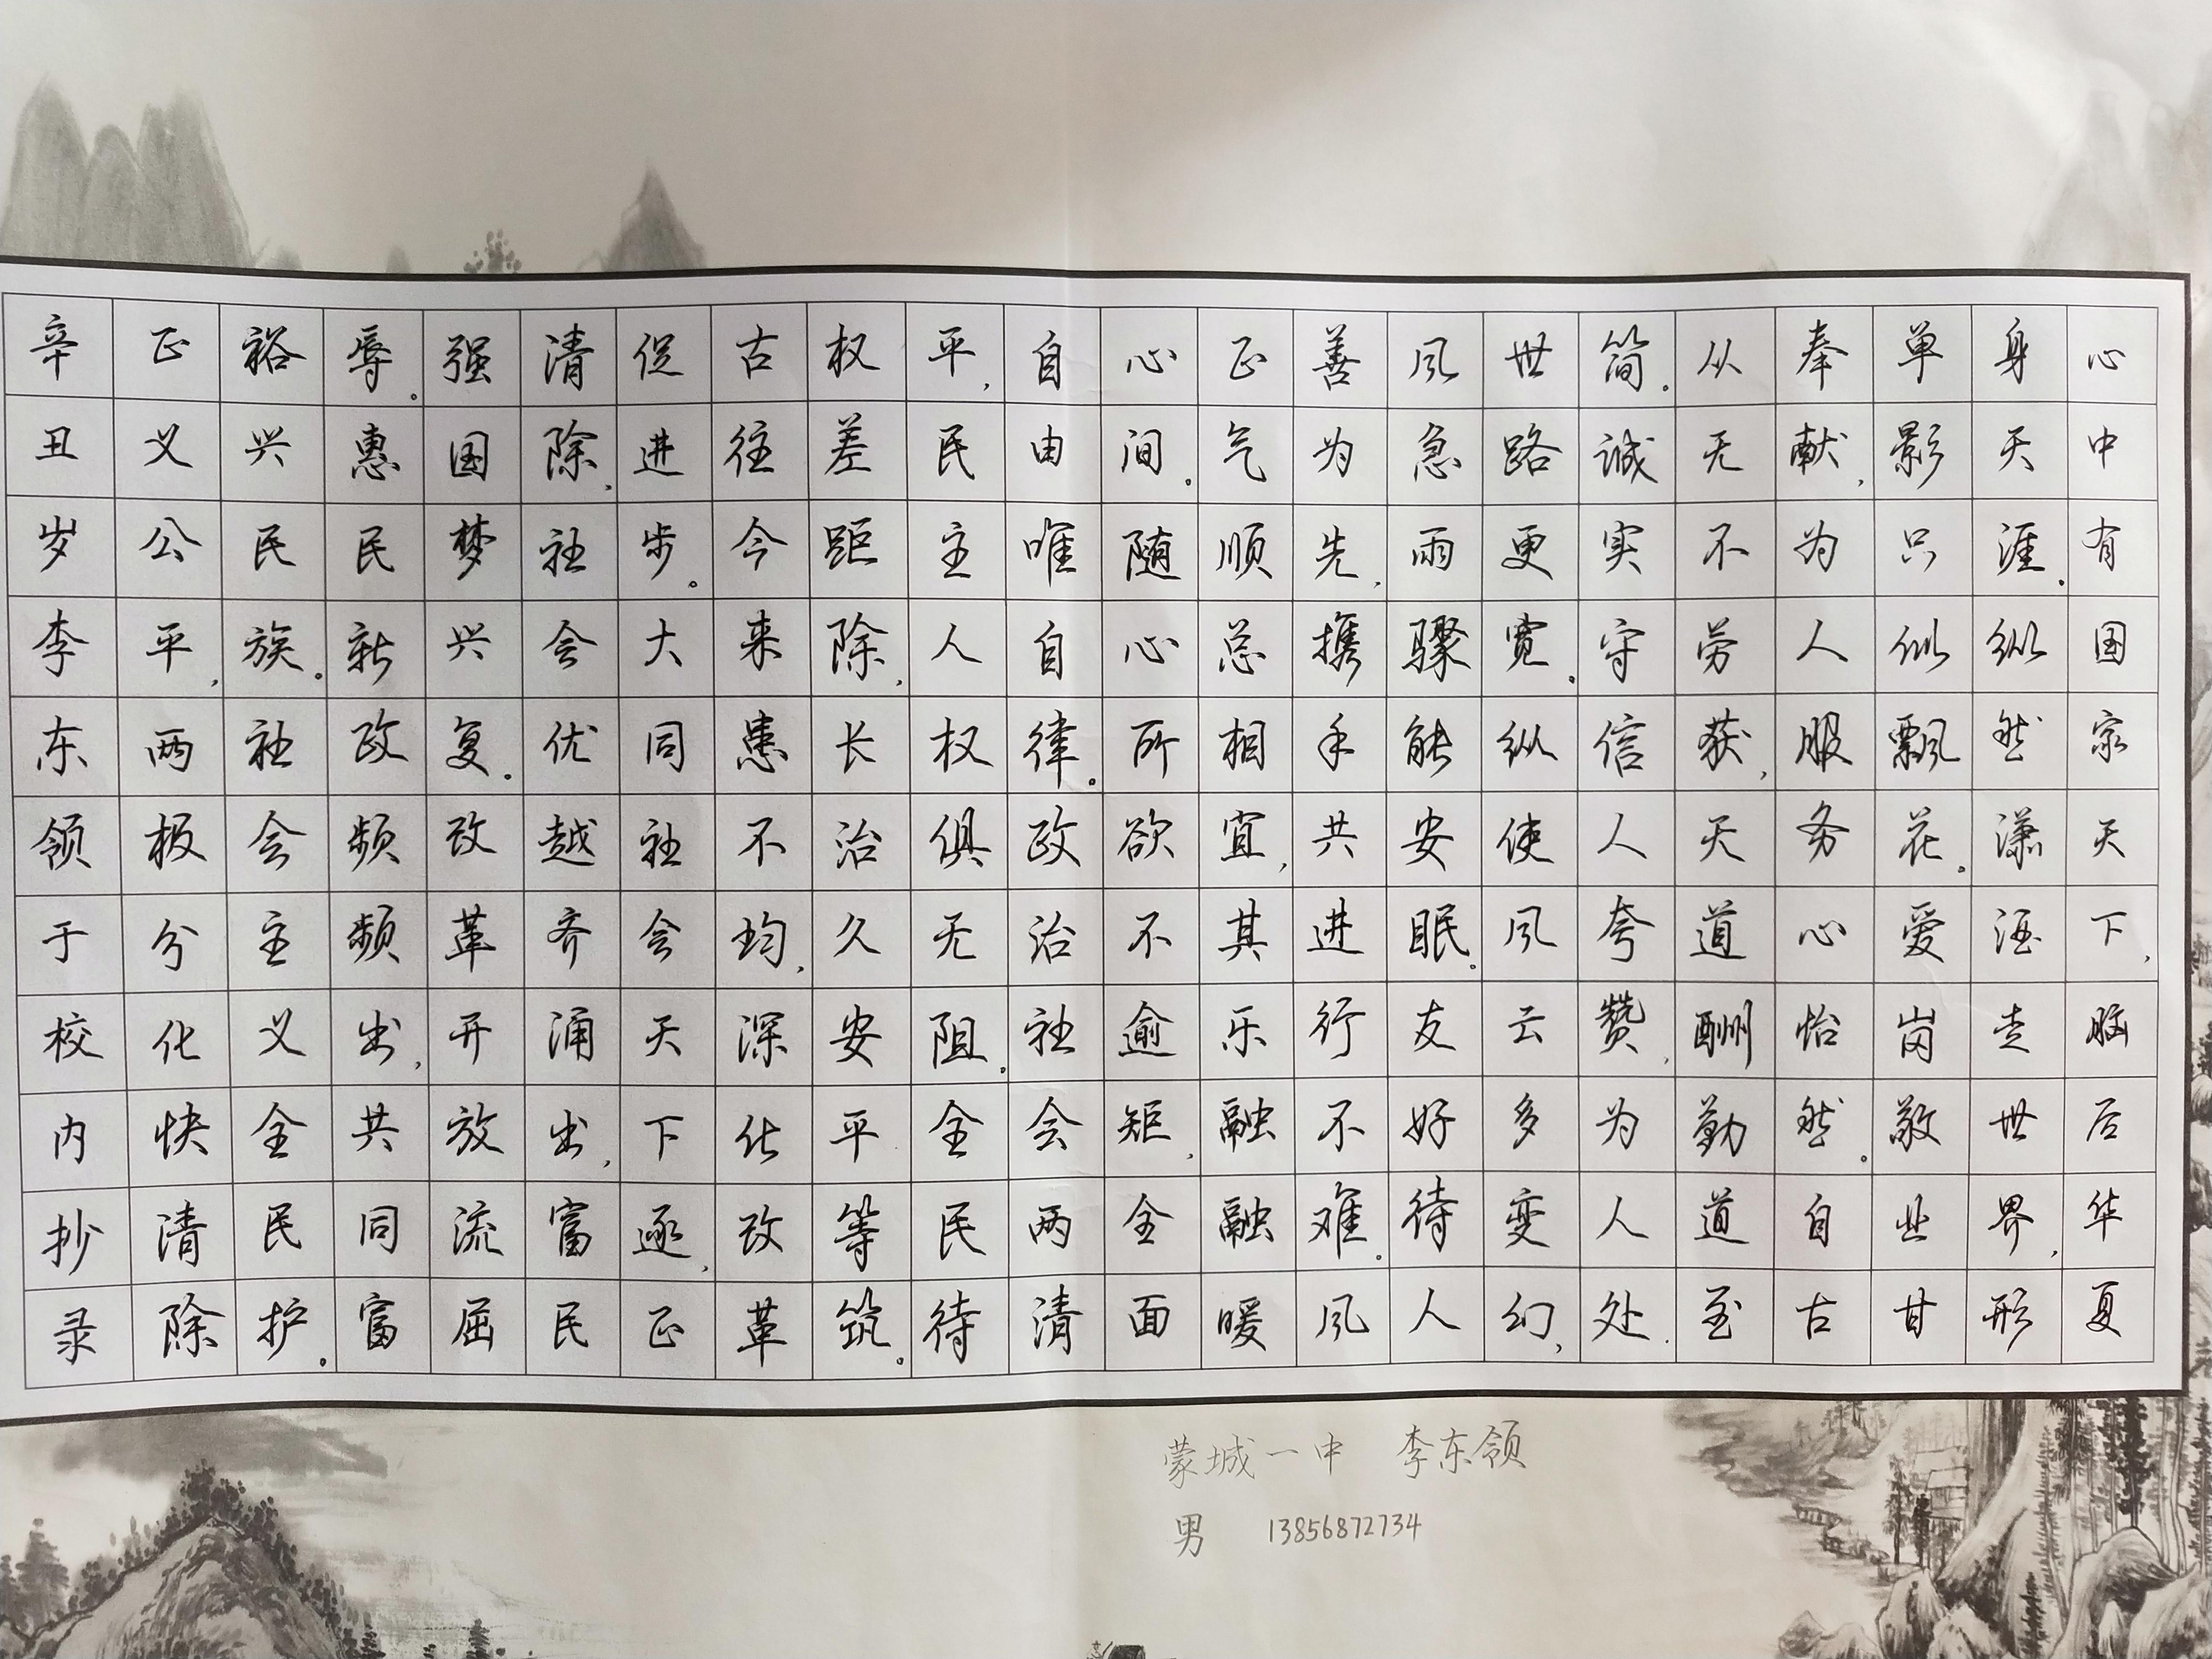 心中有国家天下,脑后华夏
身天涯.纵然潇洒走世界,形
单影只似飘花。爱岗敬业甘
奉献,为人服务心怡然。自古
从无不劳获,天道酬勤道至
简.诚实守信人夸赞,为人处
世路更宽.纵使风云多变幻,
风急雨骤能安眠。友好待人
善为先,携手共进行不难.风
正气顺总相宜,其乐融融暖
心间。随心所欲不逾矩,全面
自由唯自律。政治社会两清
平,民主人权俱无阻.全民待
权差距除,长治久安平等筑。
古往今来患不均,深化改革
促进步。大同社会天下逐,正
清除,社会优越齐涌出,富民
强国梦兴复。改革开放流屈
辱。惠民新政频频出,共同富
裕兴民族。社会主义全民护。
正义公平,两极分化快清除
辛丑岁李东领于校内抄录
蒙城一中 李东领
男 13856872734